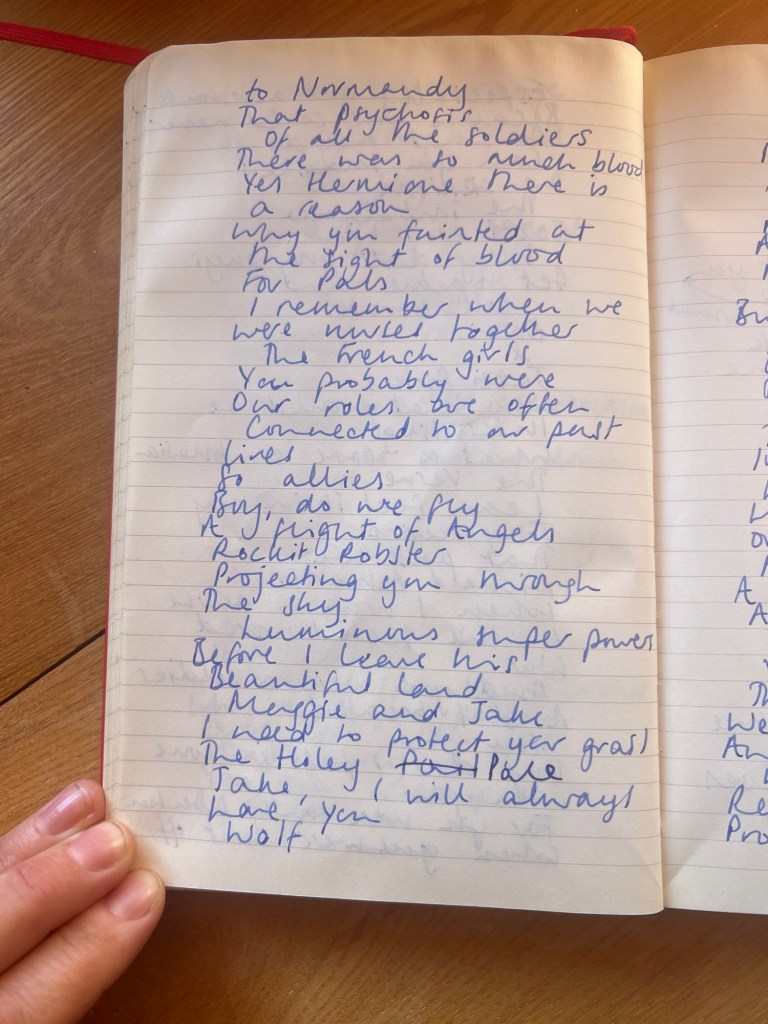 to Normandy
That psychosis
Of all the soldiers
There was so much blood
Yes Hermione there is
a reason
Why you fainted at
The sight of blood
For Pals
I remember when we
were nurses together
The French girls
You probably were
Our roles are often
Connected to our past
lives
So allies
Boy, do we fly
A flight of Angels
Rockit Robster
Projecting you through
The sky
Luminous super powers
Before I leave this
Beautiful land
Meggie and Jake
I need to protect your grail
The Holey Pale
Jake, I will always
Love you
Wolf